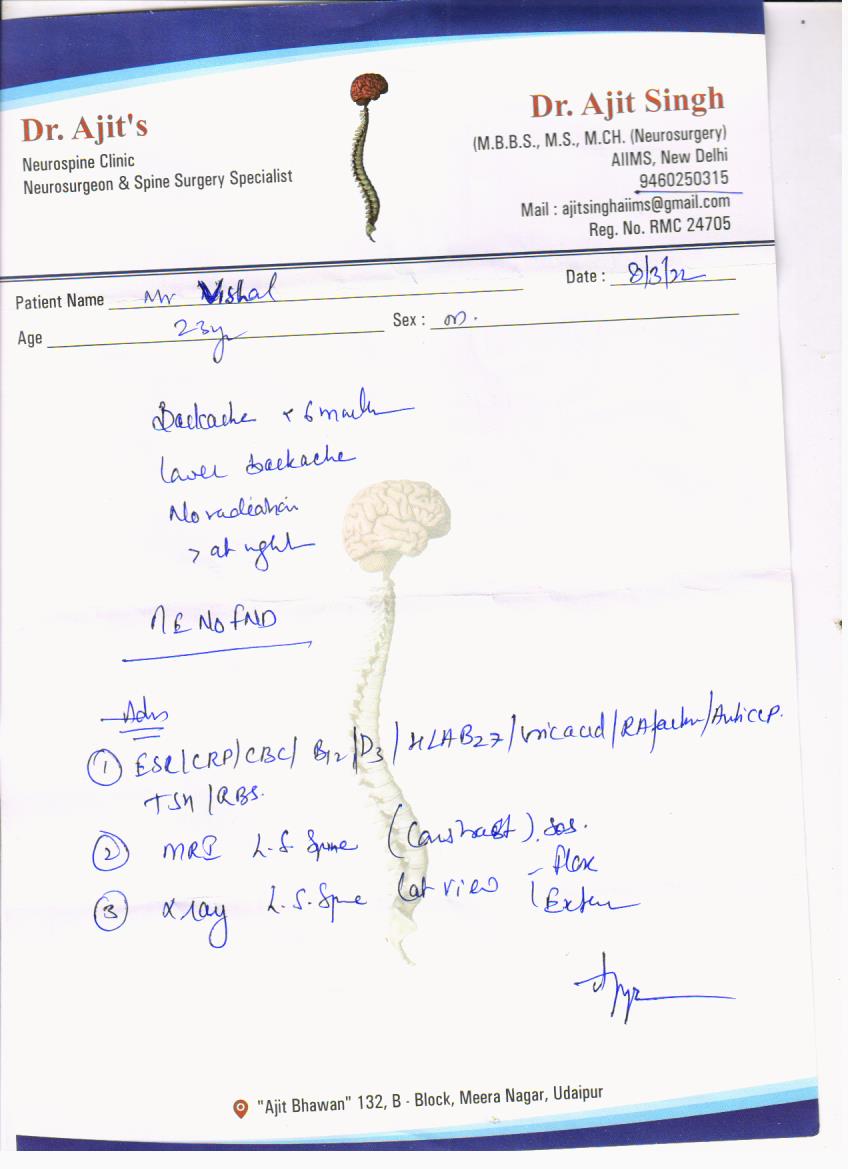 Dr. Ajit's
Neurospine Clinic
Neurosurgeon & Spine Surgery Specialist
Dr. Ajit Singh
(M.B.B.S., M.S., M.CH. (Neurosurgery)
AIIMS, New Delhi
9460250315
Mail : ajitsinghaiims@gmail.com
Reg. No. RMC 24705
Patient Name Mr Vishal Date : 8/3/22
Age 23yr Sex : m.
Backache x 6 month
Lower backache
No radiation
> at night
NE No FND
Adv
① ESR/CRP/CBC/ B12/D3/ HLAB27/Uric acid/RA factor/Anti CCP.
TSH/RBS.
② MRI L.S. Spine (Contrast). sos.
③ Xray L.S. Spine Lat view - Flex
Exten
"Ajit Bhawan" 132, B - Block, Meera Nagar, Udaipur